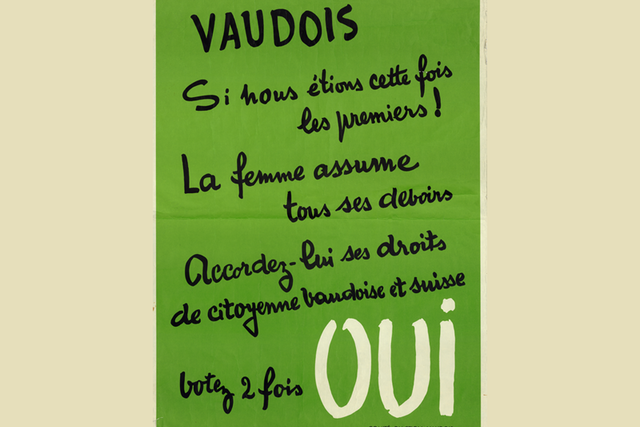 VAUDOIS
Si nous étions cette fois
les premiers!
La femme assume
tous ses devoirs
Accordez-lui ses droits
de citoyenne vaudoise et suisse
votez 2 fois OUI